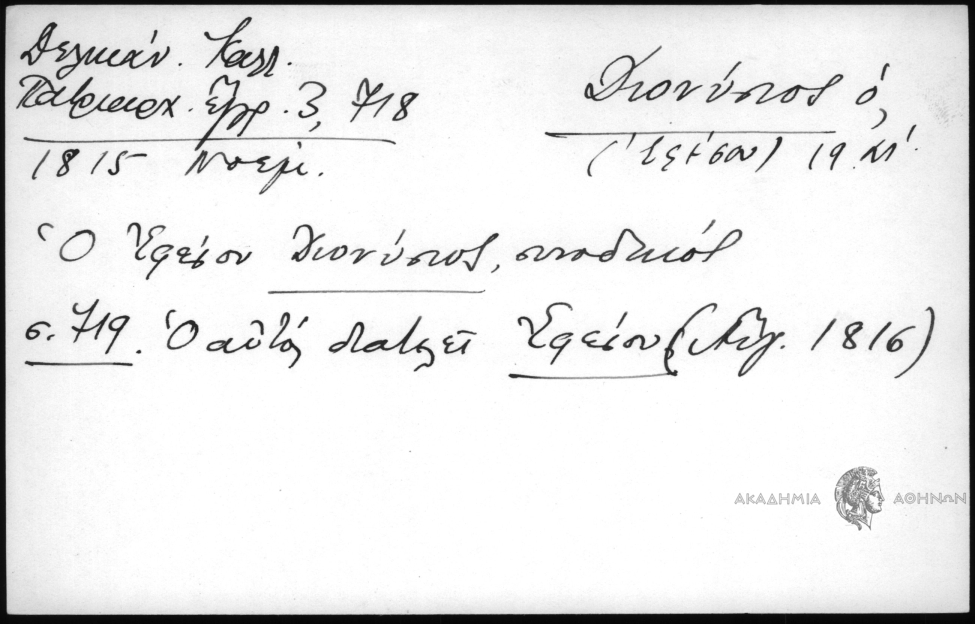 Δελικάν. Καλλ.
Πατριαρχ. Ἔγγρ. 3, 718
1815 Νοεμ.
Διονύσιος ὁ,
(Ἐφέσου) 19 αἰ.
Ὁ Ἐφέσου Διονύσιος, συνοδικός
σ. 719. Ὁ αὐτός διατελεῖ Ἐφέσου (Αὔγ. 1816)
ΑΚΑΔΗΜΙΑ ΑΘΗΝΩΝ